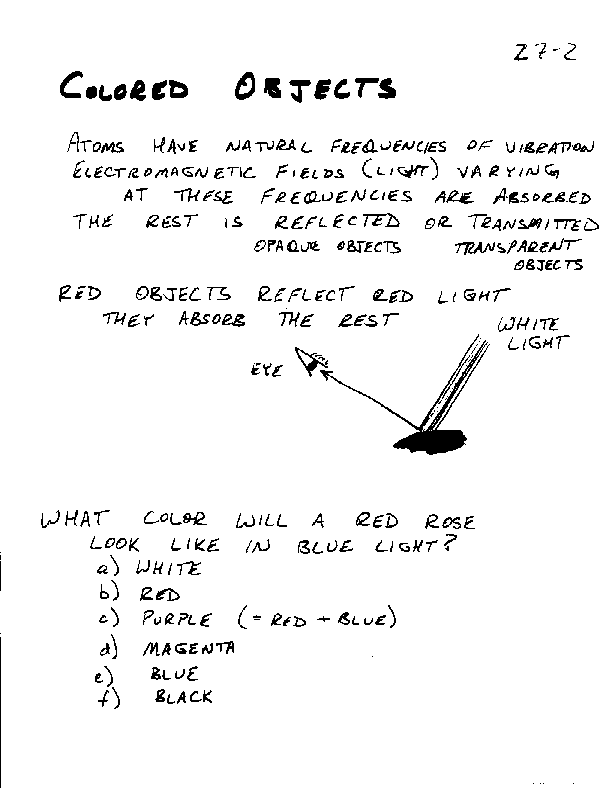 27-2
COLORED OBJECTS
ATOMS HAVE NATURAL FREQUENCIES OF VIBRATION
ELECTROMAGNETIC FIELDS (LIGHT) VARYING
AT THESE FREQUENCIES ARE ABSORBED
THE REST IS REFLECTED OR TRANSMITTED
OPAQUE OBJECTS TRANSPARENT
OBJECTS
RED OBJECTS REFLECT RED LIGHT
THEY ABSORB THE REST
WHITE
LIGHT
EYE
WHAT COLOR WILL A RED ROSE
LOOK LIKE IN BLUE LIGHT?
a) WHITE
b) RED
c) PURPLE (= RED + BLUE)
d) MAGENTA
e) BLUE
f) BLACK